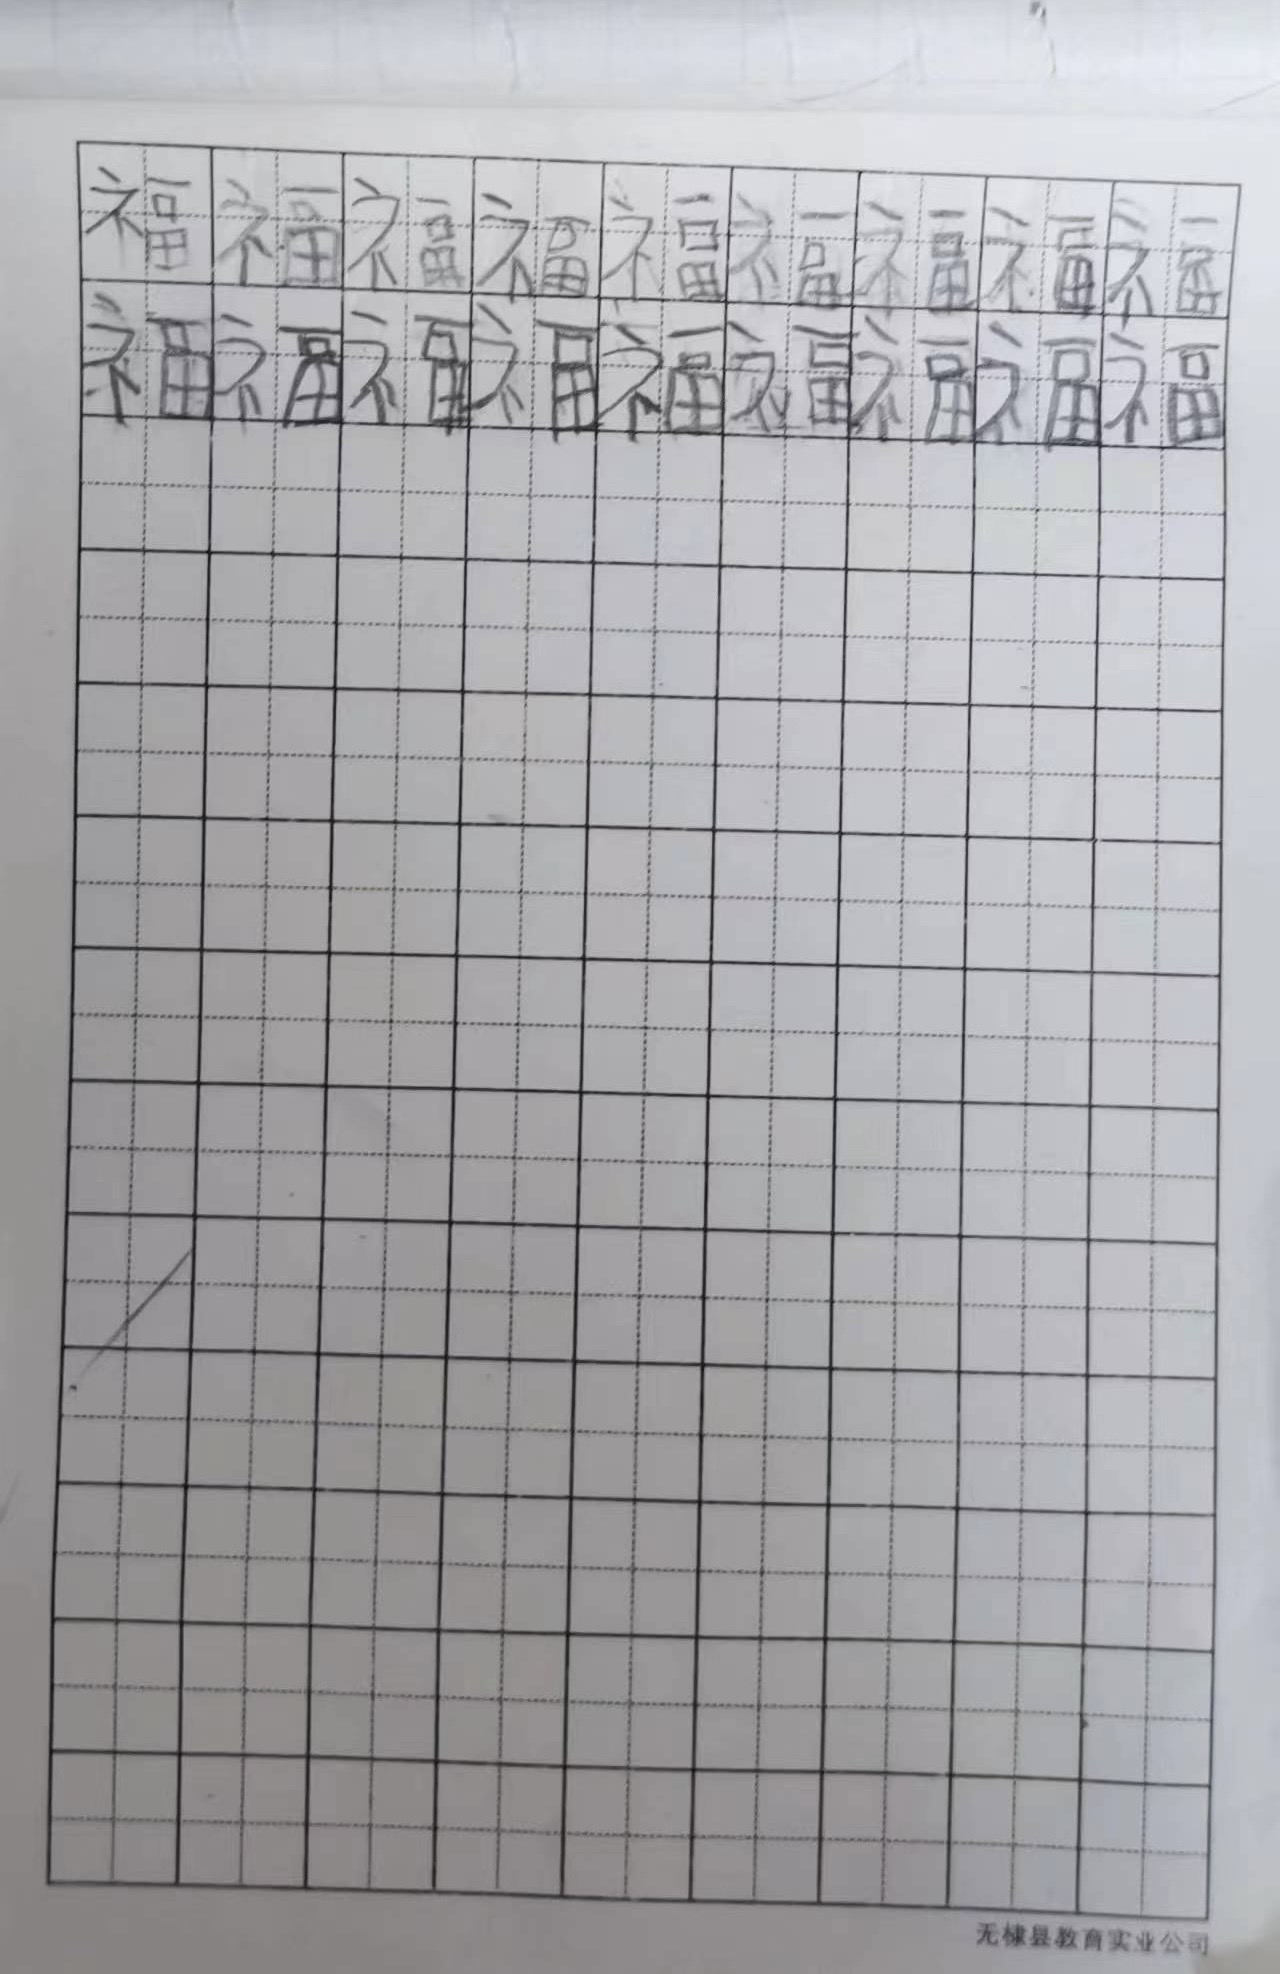 福福福福福福福福福
福福福福福福福福福
无棣县教育实业公司